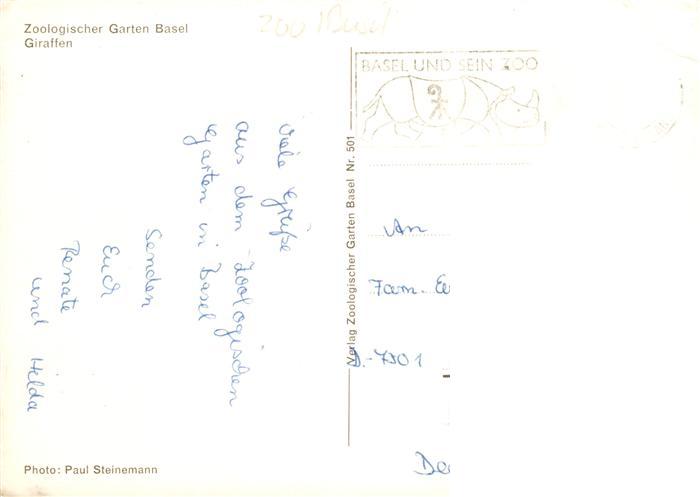 Zoologischer Garten Basel
Giraffen
BASEL UND SEIN ZOO
Viele Grüße
aus dem Zoologischen
Garten in Basel
Senden
Euch
Renate
und Hilda
Verlag Zoologischer Garten Basel Nr. 501
An
Fam.
D-7801
Photo: Paul Steinemann